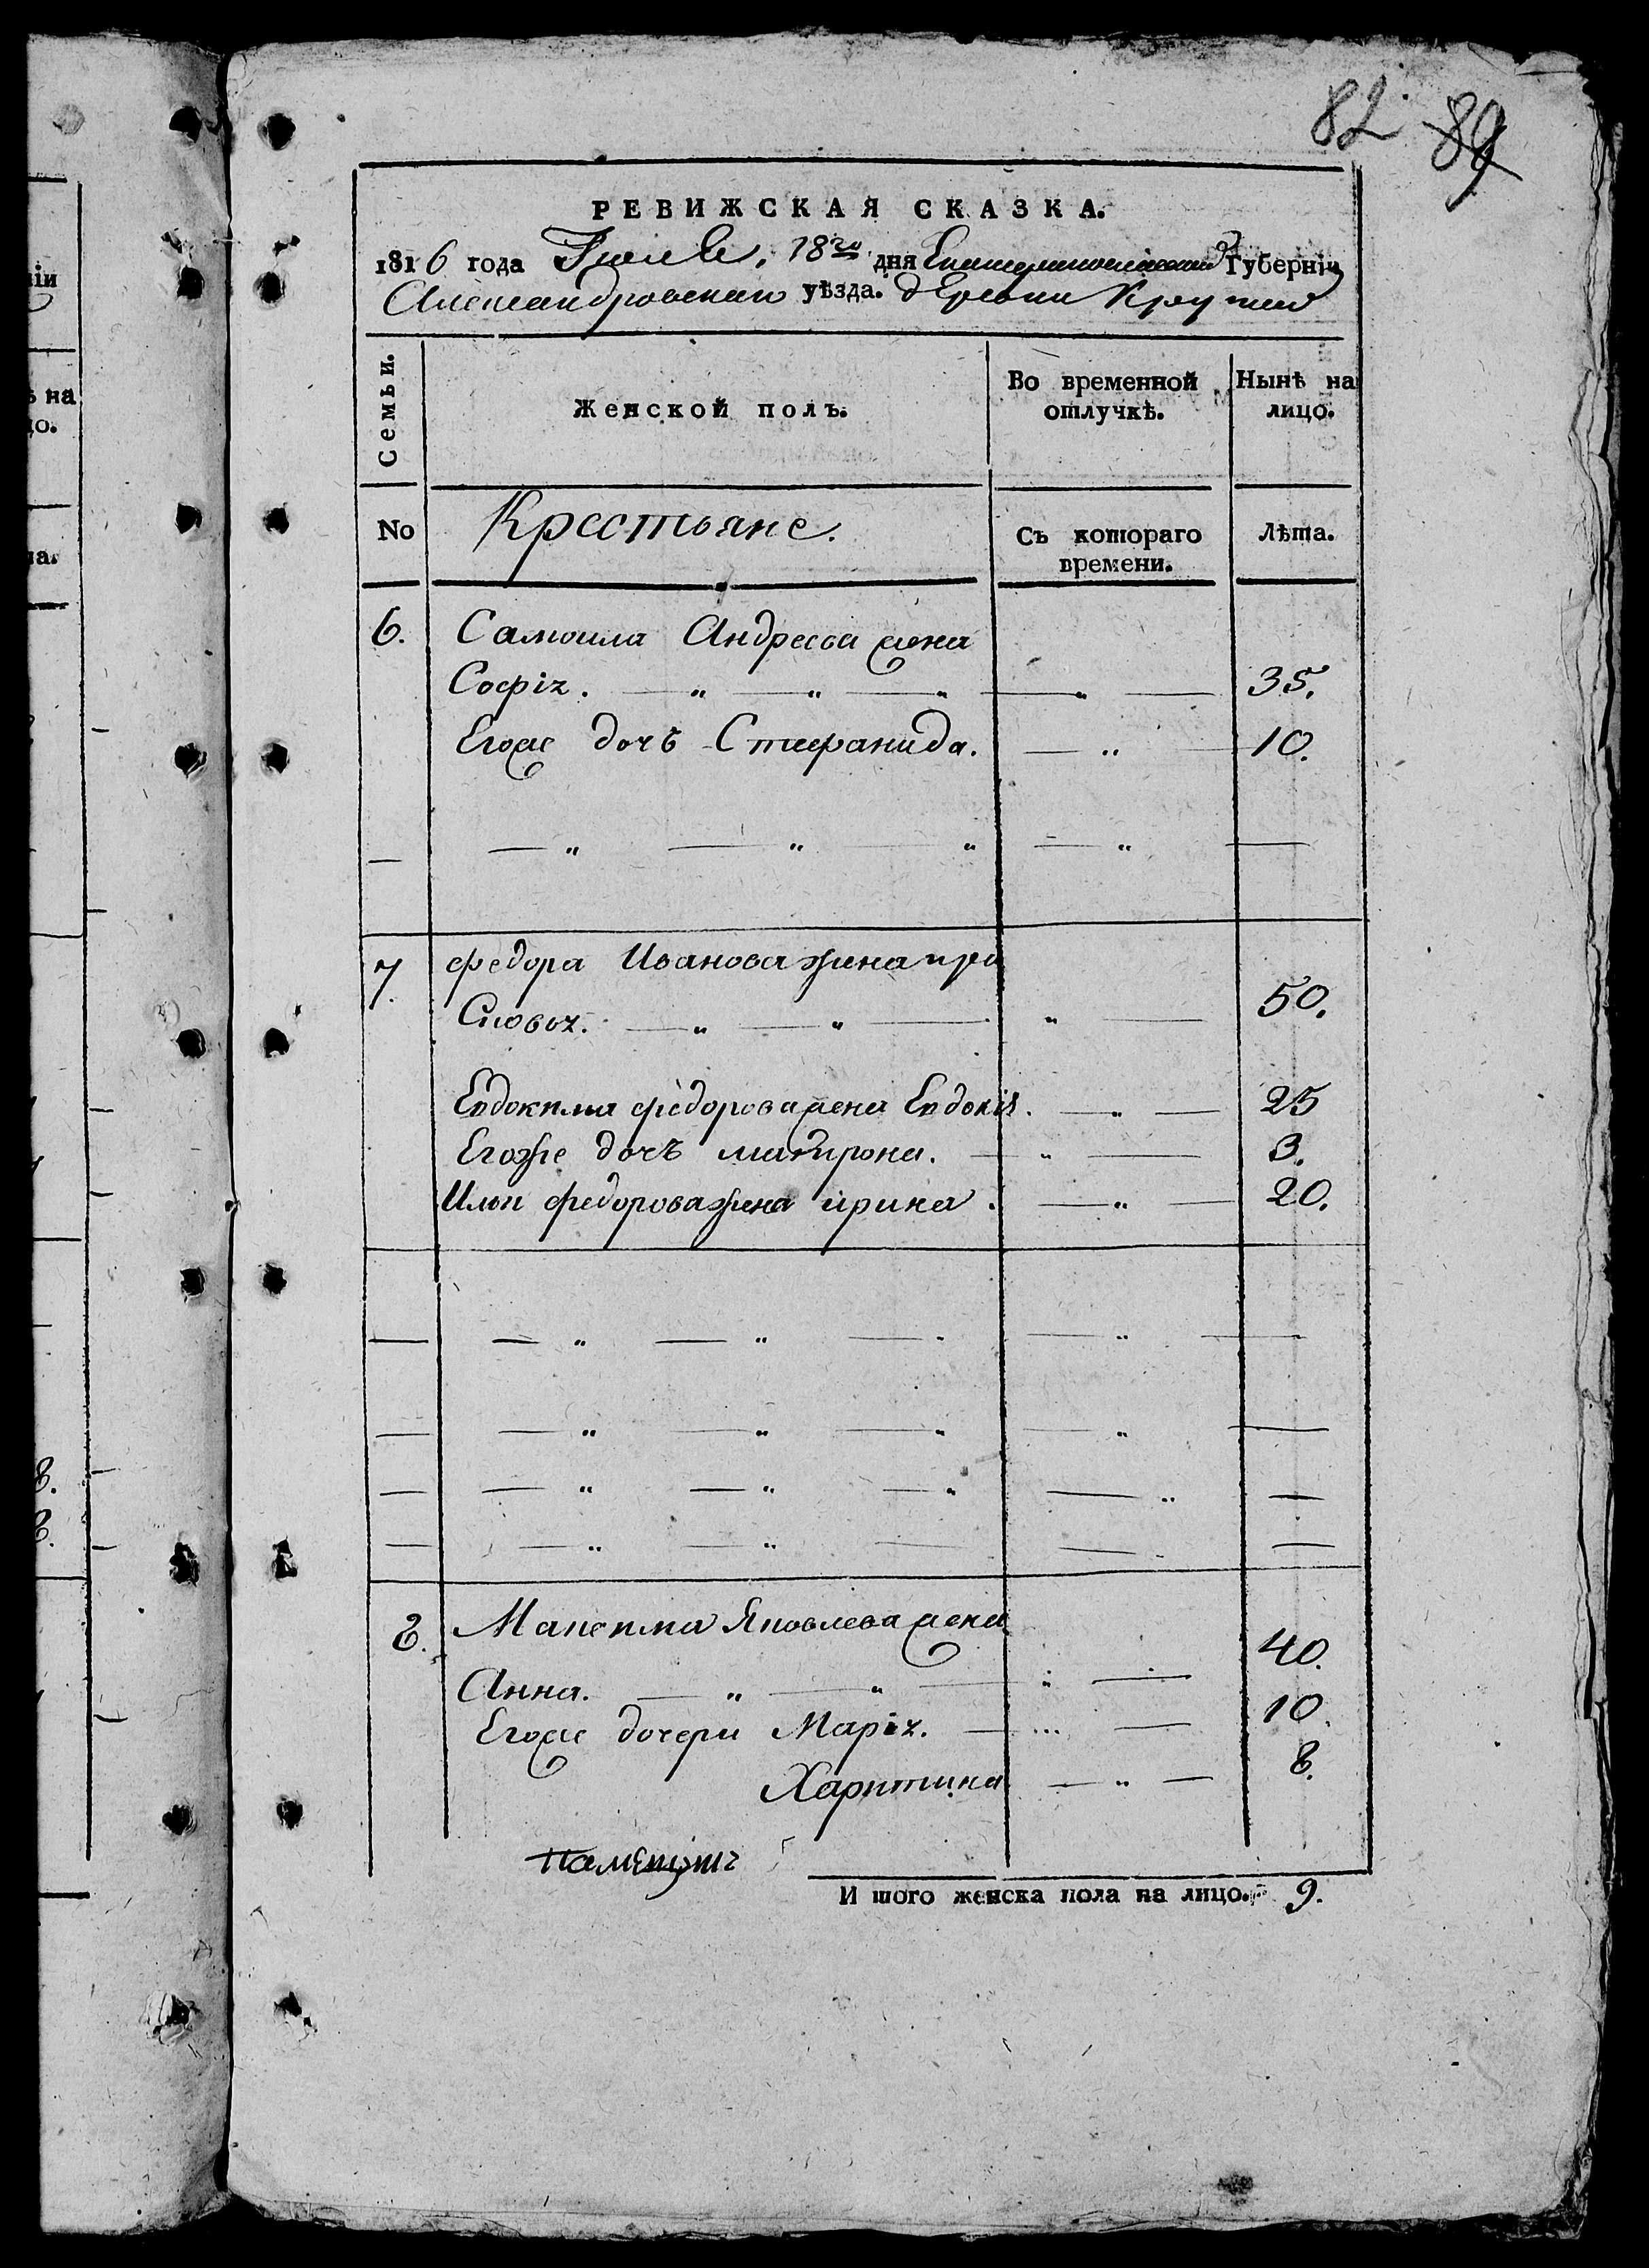 82. 89
РЕВИЖСКАЯ СКАЗКА.
1816 года Июля, 18го дня Екатеринославской Губерніи
Александровскаго уѣзда. дЕревни Крутой
Семьи.
Женской полъ.
Во временной отлучкѣ.
Нынѣ на лицо.
No
Крестьяне.
Съ котораго времени.
Лѣта.
6. Самоила Андреева жена
Софія. — „ — „ — „ — „ — 35.
Егоже дочь Стефанида. — „ — 10.
— — „ — „ — „ — „ —
7. федора Иванова жена пра
Сковья. — „ — „ — „ — 50.
Евдокима федорова жена Евдокія. — „ — 25
Егоже дочь матрона. — „ — 3.
Ильи федорова жена ирина. — „ — 20.
— — „ — „ — „ — „ —
— — „ — „ — „ — „ —
— — „ — „ — „ — „ —
— — „ — „ — — —
8. Максима Яковлева жена
Анна. — „ — „ — „ — 40.
Егоже дочери Марія. — „ — 10.
Харитина — „ — 8.
И того женска пола на лицо. 9.
ніи
ѣ на
цо.
на.
8.
8.